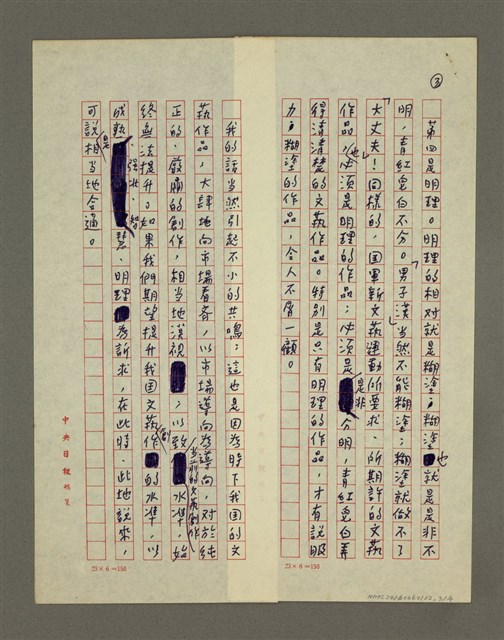 ③
第四是明理。明理的相對就是糊塗，糊塗也就是是非不
明，青紅皂白不分。「男子漢當然不能糊塗；糊塗就做不了
大丈夫！」同樣的，國軍新文藝運動所要求、所期許的文藝
作品，也必須是明理的作品；必須是是非分明，青紅皂白弄
得清清楚楚的文藝作品。特別是只有明理的作品，才有說服
力，糊塗的作品，令人不屑一顧。
我的話當然引起不小的共鳴；這也是因為時下我國的文
藝作品，大肆地向市場看齊，以市場導向為導向，對於純
正的、嚴肅的創作，相當地漠視，以致當前的文藝創作水準，始
終無法提升。如果我們期望提升我國文藝創作的水準，以
成熟、強壯、智慧、明理為訴求，在此時、此地說來，
可說是相當地合適。
中央日報稿箋
25×6=150
25×6=150